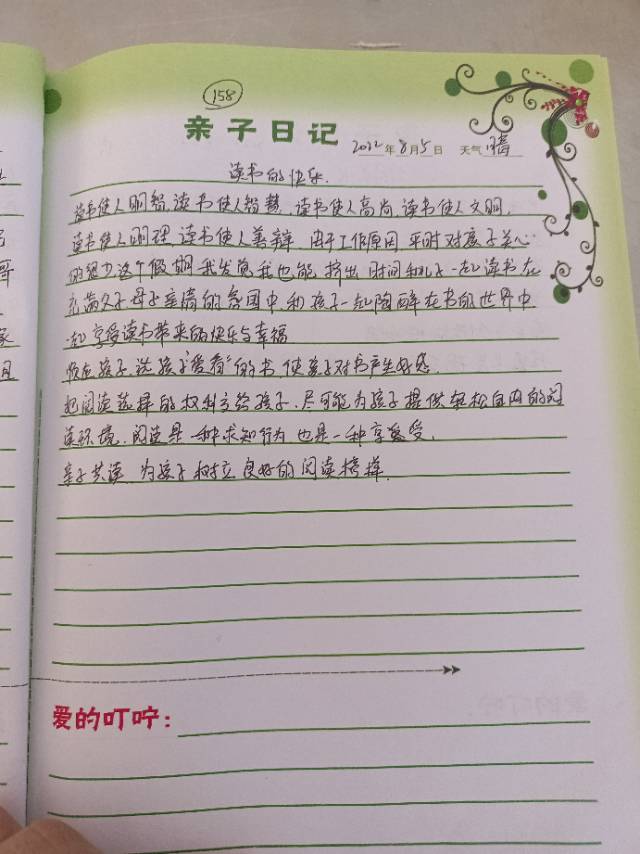 158
亲子日记
2022年8月5日 天气 晴
读书的快乐.
读书使人明智,读书使人智慧,读书使人高尚,读书使人文明,
读书使人明理,读书使人善辩 由于工作原因 平时对孩子关心
的很少这个假期我发觉我也能 挤出 时间和儿子一起读书在
充满父子母子亲情的氛围中,和孩子一起陶醉在书的世界中
一起享受读书带来的快乐与幸福
顺应孩子,选孩子"爱看"的书,使孩子对书产生好感.
把阅读选择的权利交给孩子.尽可能为孩子提供轻松自由的阅
读环境.阅读是一种求知行为 也是一种享受.
亲子共读 为孩子树立良好的阅读榜样.
爱的叮咛: